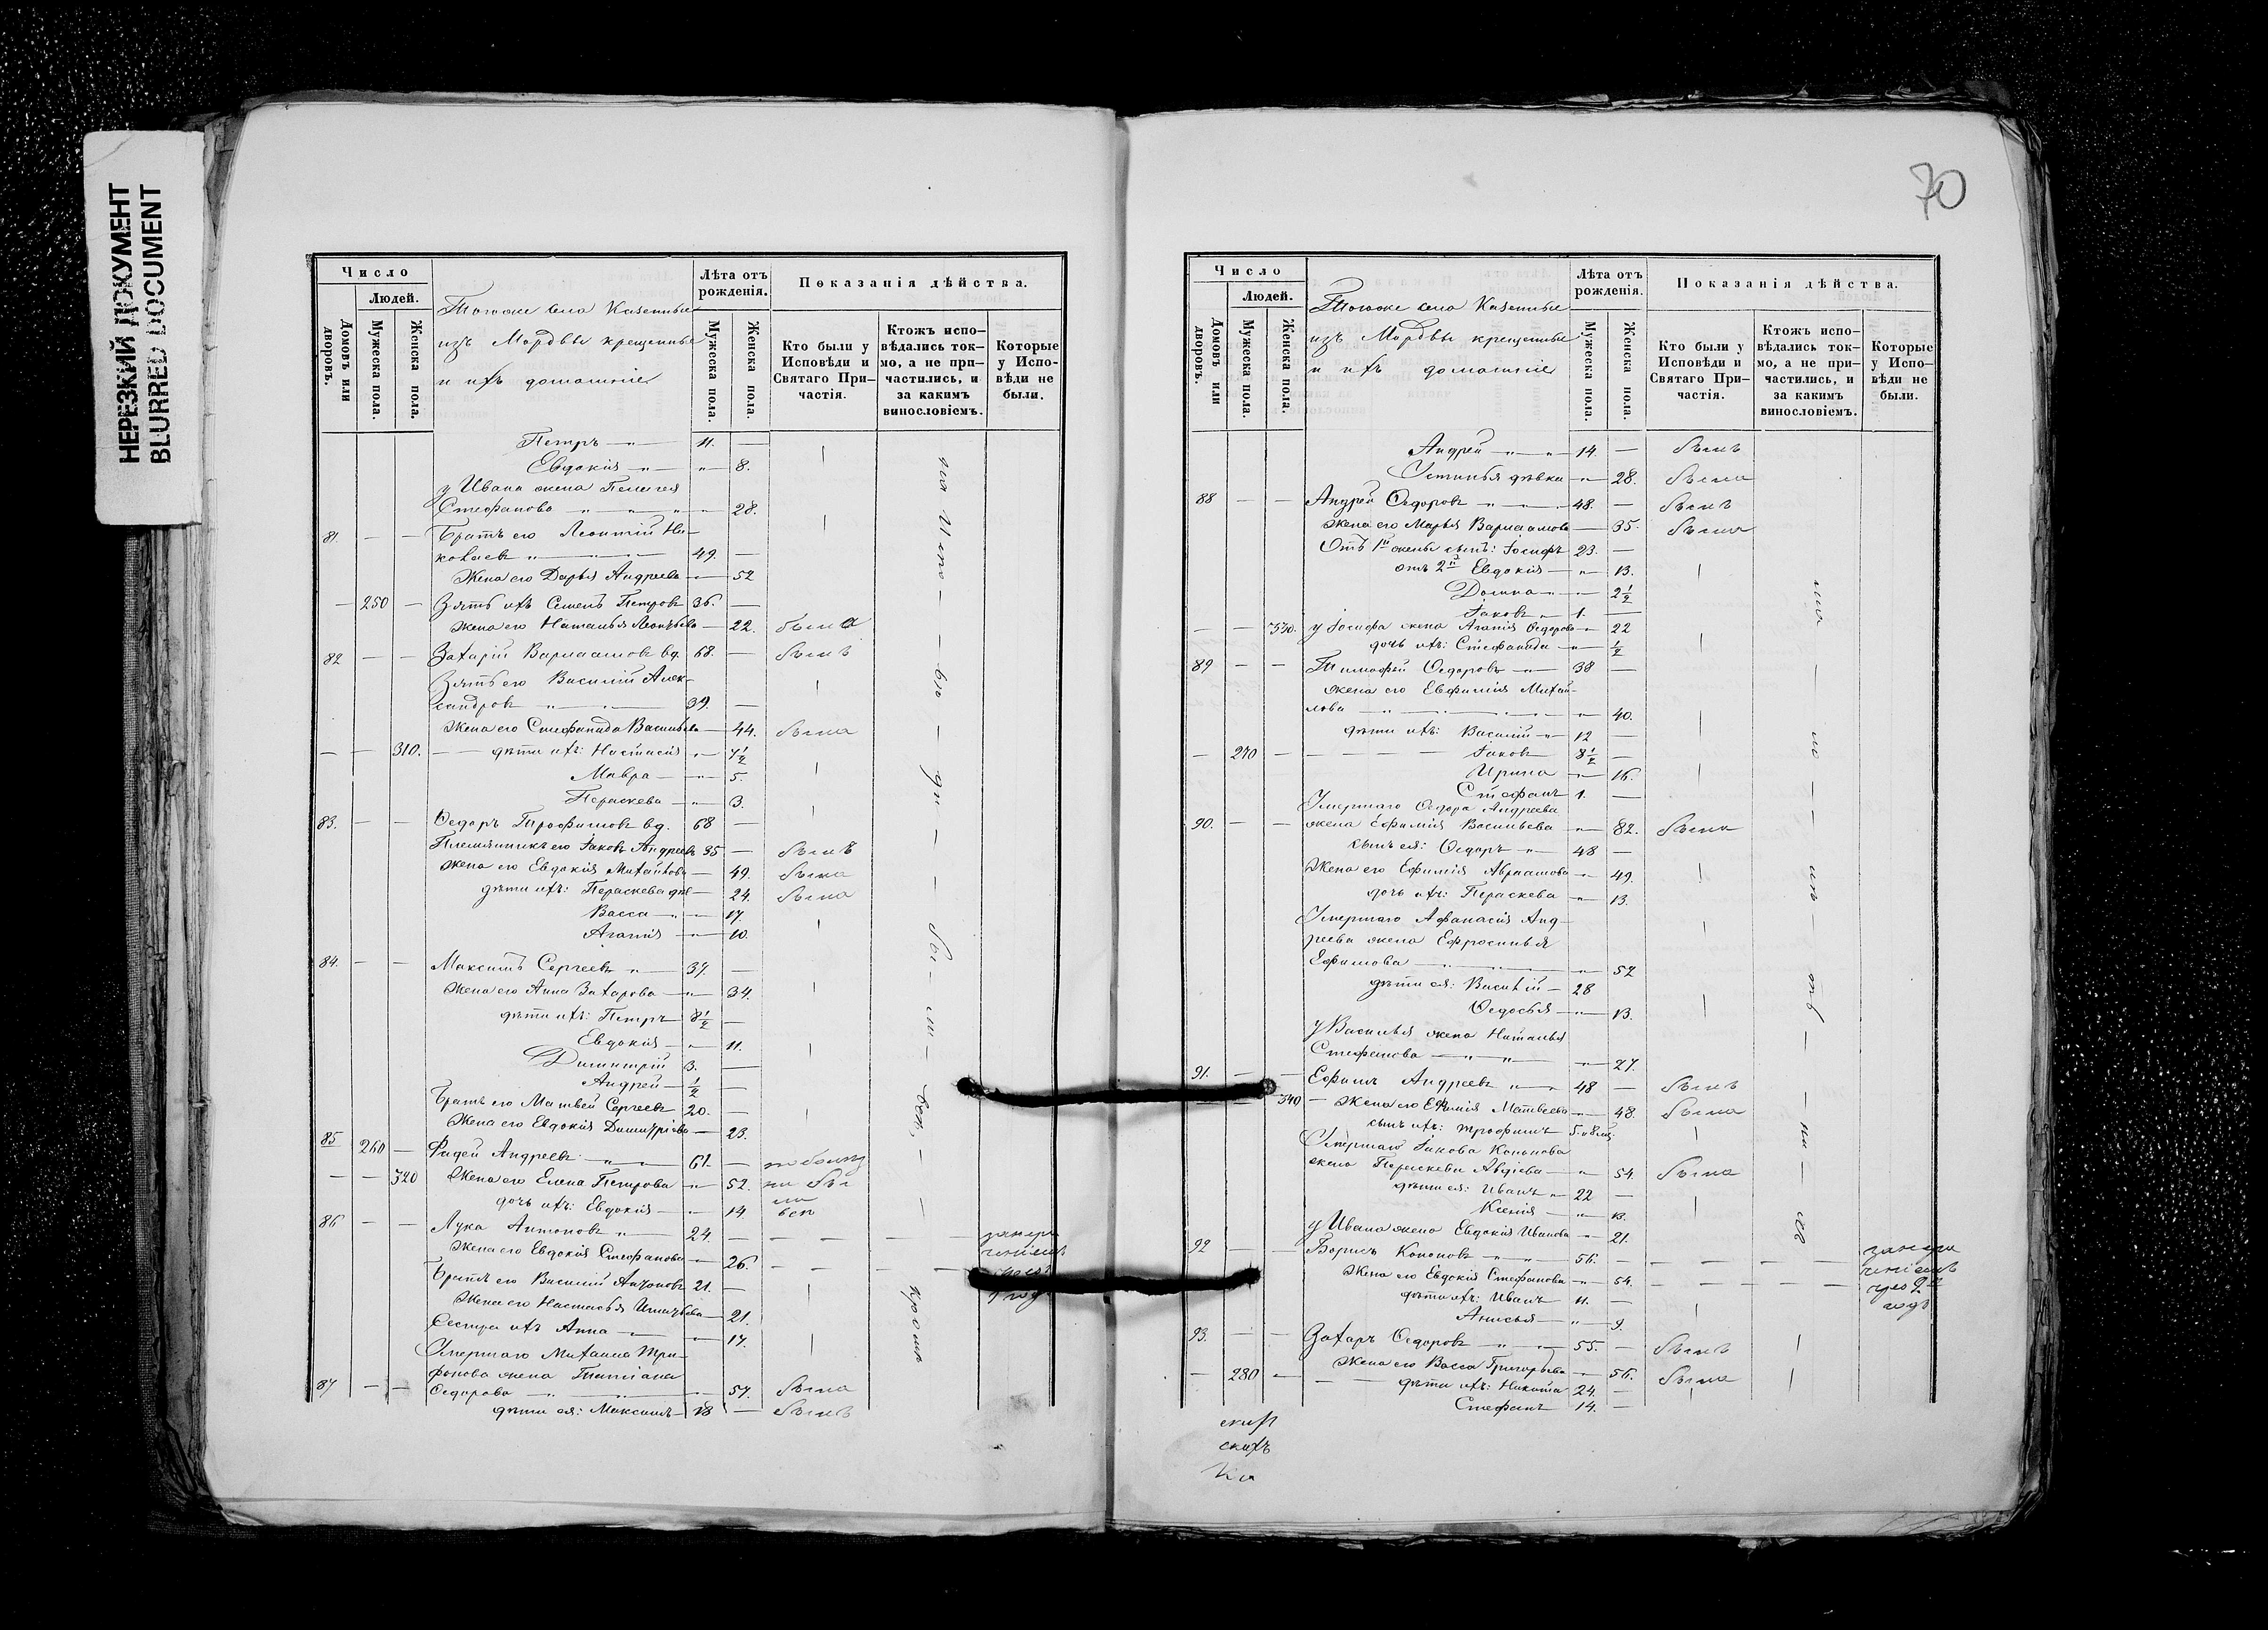 НЕРЕЗКИЙ ДОКУМЕНТ
BLURRED DOCUMENT
Число
Людей.
Домовъ или дворовъ.
Мужеска пола.
Женска пола.
Тогоже села Казенные
изъ Мордвы крещенные
и ихъ домашніе
Лѣта отъ рожденія.
Мужеска пола.
Женска пола.
Показанія дѣйства.
Кто были у Исповѣди и Святаго При-частія.
Ктожъ испо-вѣдались ток-мо, а не при-частились, и за какимъ винословіемъ.
Которые у Испо-вѣди не были.
Петръ 11.
Евдокія 8.
у Ивана жена Пелагея
Стефанова 28.
81. Братъ его Леонтій Ни-
колаевъ 49.
Жена его Дарья Андреева 52
250 Зять ихъ Семенъ Петровъ 36.
Жена его Наталья Леонтьева 22. была
82 Захарій Варлаамовъ вд. 68. былъ
Зять его Василій Алек-
сандровъ 39.
Жена его Стефанида Васильева 44. была
310. дѣти ихъ: Настасія 7 1/2
Мавра 5.
Параскева 3.
83. Ѳедоръ Трофимовъ вд. 68
Племянникъ его Іаковъ Андреевъ 35 былъ
Жена его Евдокія Михайлова 49. была
дѣти ихъ: Параскева 24. была
Васса 17.
Агапія 10.
84. Максимъ Сергеевъ 37.
Жена его Анна Захарова 34.
дѣти ихъ: Петръ 8 1/2
Евдокія 11.
Димитрій 3.
Андрей 1/2
Братъ его Матвей Сергеевъ 20.
Жена его Евдокія Димитріева 23.
85 260 Фадей Андреевъ 61.
320 Жена его Елена Петрова 52.
дочь ихъ: Евдокія 14.
86 Лука Антоновъ 24.
Жена его Евдокія Стефанова 26.
Братъ его Василій Антоновъ 21.
Жена его Настасья Игнатьева 21.
Сестра ихъ Анна 17.
Умершаго Михаила Три-
фонова жена Татіана
87 Ѳедорова 57. была
дѣти ея: Максимъ 18 былъ
кромѣ
70
Число
Людей.
Домовъ или дворовъ.
Мужеска пола.
Женска пола.
Тогоже села Казенные
изъ Мордвы крещенные
и ихъ домашніе
Лѣта отъ рожденія.
Мужеска пола.
Женска пола.
Показанія дѣйства.
Кто были у Исповѣди и Святаго При-частія.
Ктожъ испо-вѣдались ток-мо, а не при-частились, и за какимъ винословіемъ.
Которые у Испо-вѣди не были.
Андрей 14. былъ
Устинья дѣвка 28. была
88 Андрей Ѳедоровъ 48. былъ
Жена его Марья Варлаамова 35. была
Отъ 1й жены сынъ: Іосифъ 23.
отъ 2й Евдокія 13.
Домна 2 1/2
Іаковъ 1.
330. у Іосифа жена Агапія Ѳедорова 22
дочь ихъ: Стефанида 1/2
89 Тимофей Ѳедоровъ 38
жена его Евфимія Михай-
лова 40.
дѣти ихъ: Василій 12
270 Іаковъ 8 1/2
Ирина 16.
Стефанъ 1.
Умершаго Ѳедора Андреева
90. жена Ефимія Васильева 82. была
сынъ ея: Ѳедоръ 48
Жена его Ефимія Авраамова 49.
дочь ихъ: Параскева 13.
Умершаго Афанасія Анд-
реева жена Ефросинья
Ефимова 52
дѣти ея: Василій 28
Ѳедосья 13.
у Василья жена Наталья
Стефанова 27.
91. Ефимъ Андреевъ 48 былъ
340 Жена его Ефимія Матвеева 48. была
сынъ ихъ: Трофимъ 5. и 8 мѣ.
Умершаго Іакова Кононова
жена Параскева Авдіева 54. была
дѣти ея: Иванъ 22
Ксенія 13.
у Ивана жена Евдокія Иванова 21.
92 Борисъ Кононовъ 56.
Жена его Евдокія Стефанова 54.
дѣти ихъ: Иванъ 11.
Анисья 9.
93. Захаръ Ѳедоровъ 55. былъ
Жена его Васса Григорьева 56. была
280 дѣти ихъ: Никита 24.
Стефанъ 14.